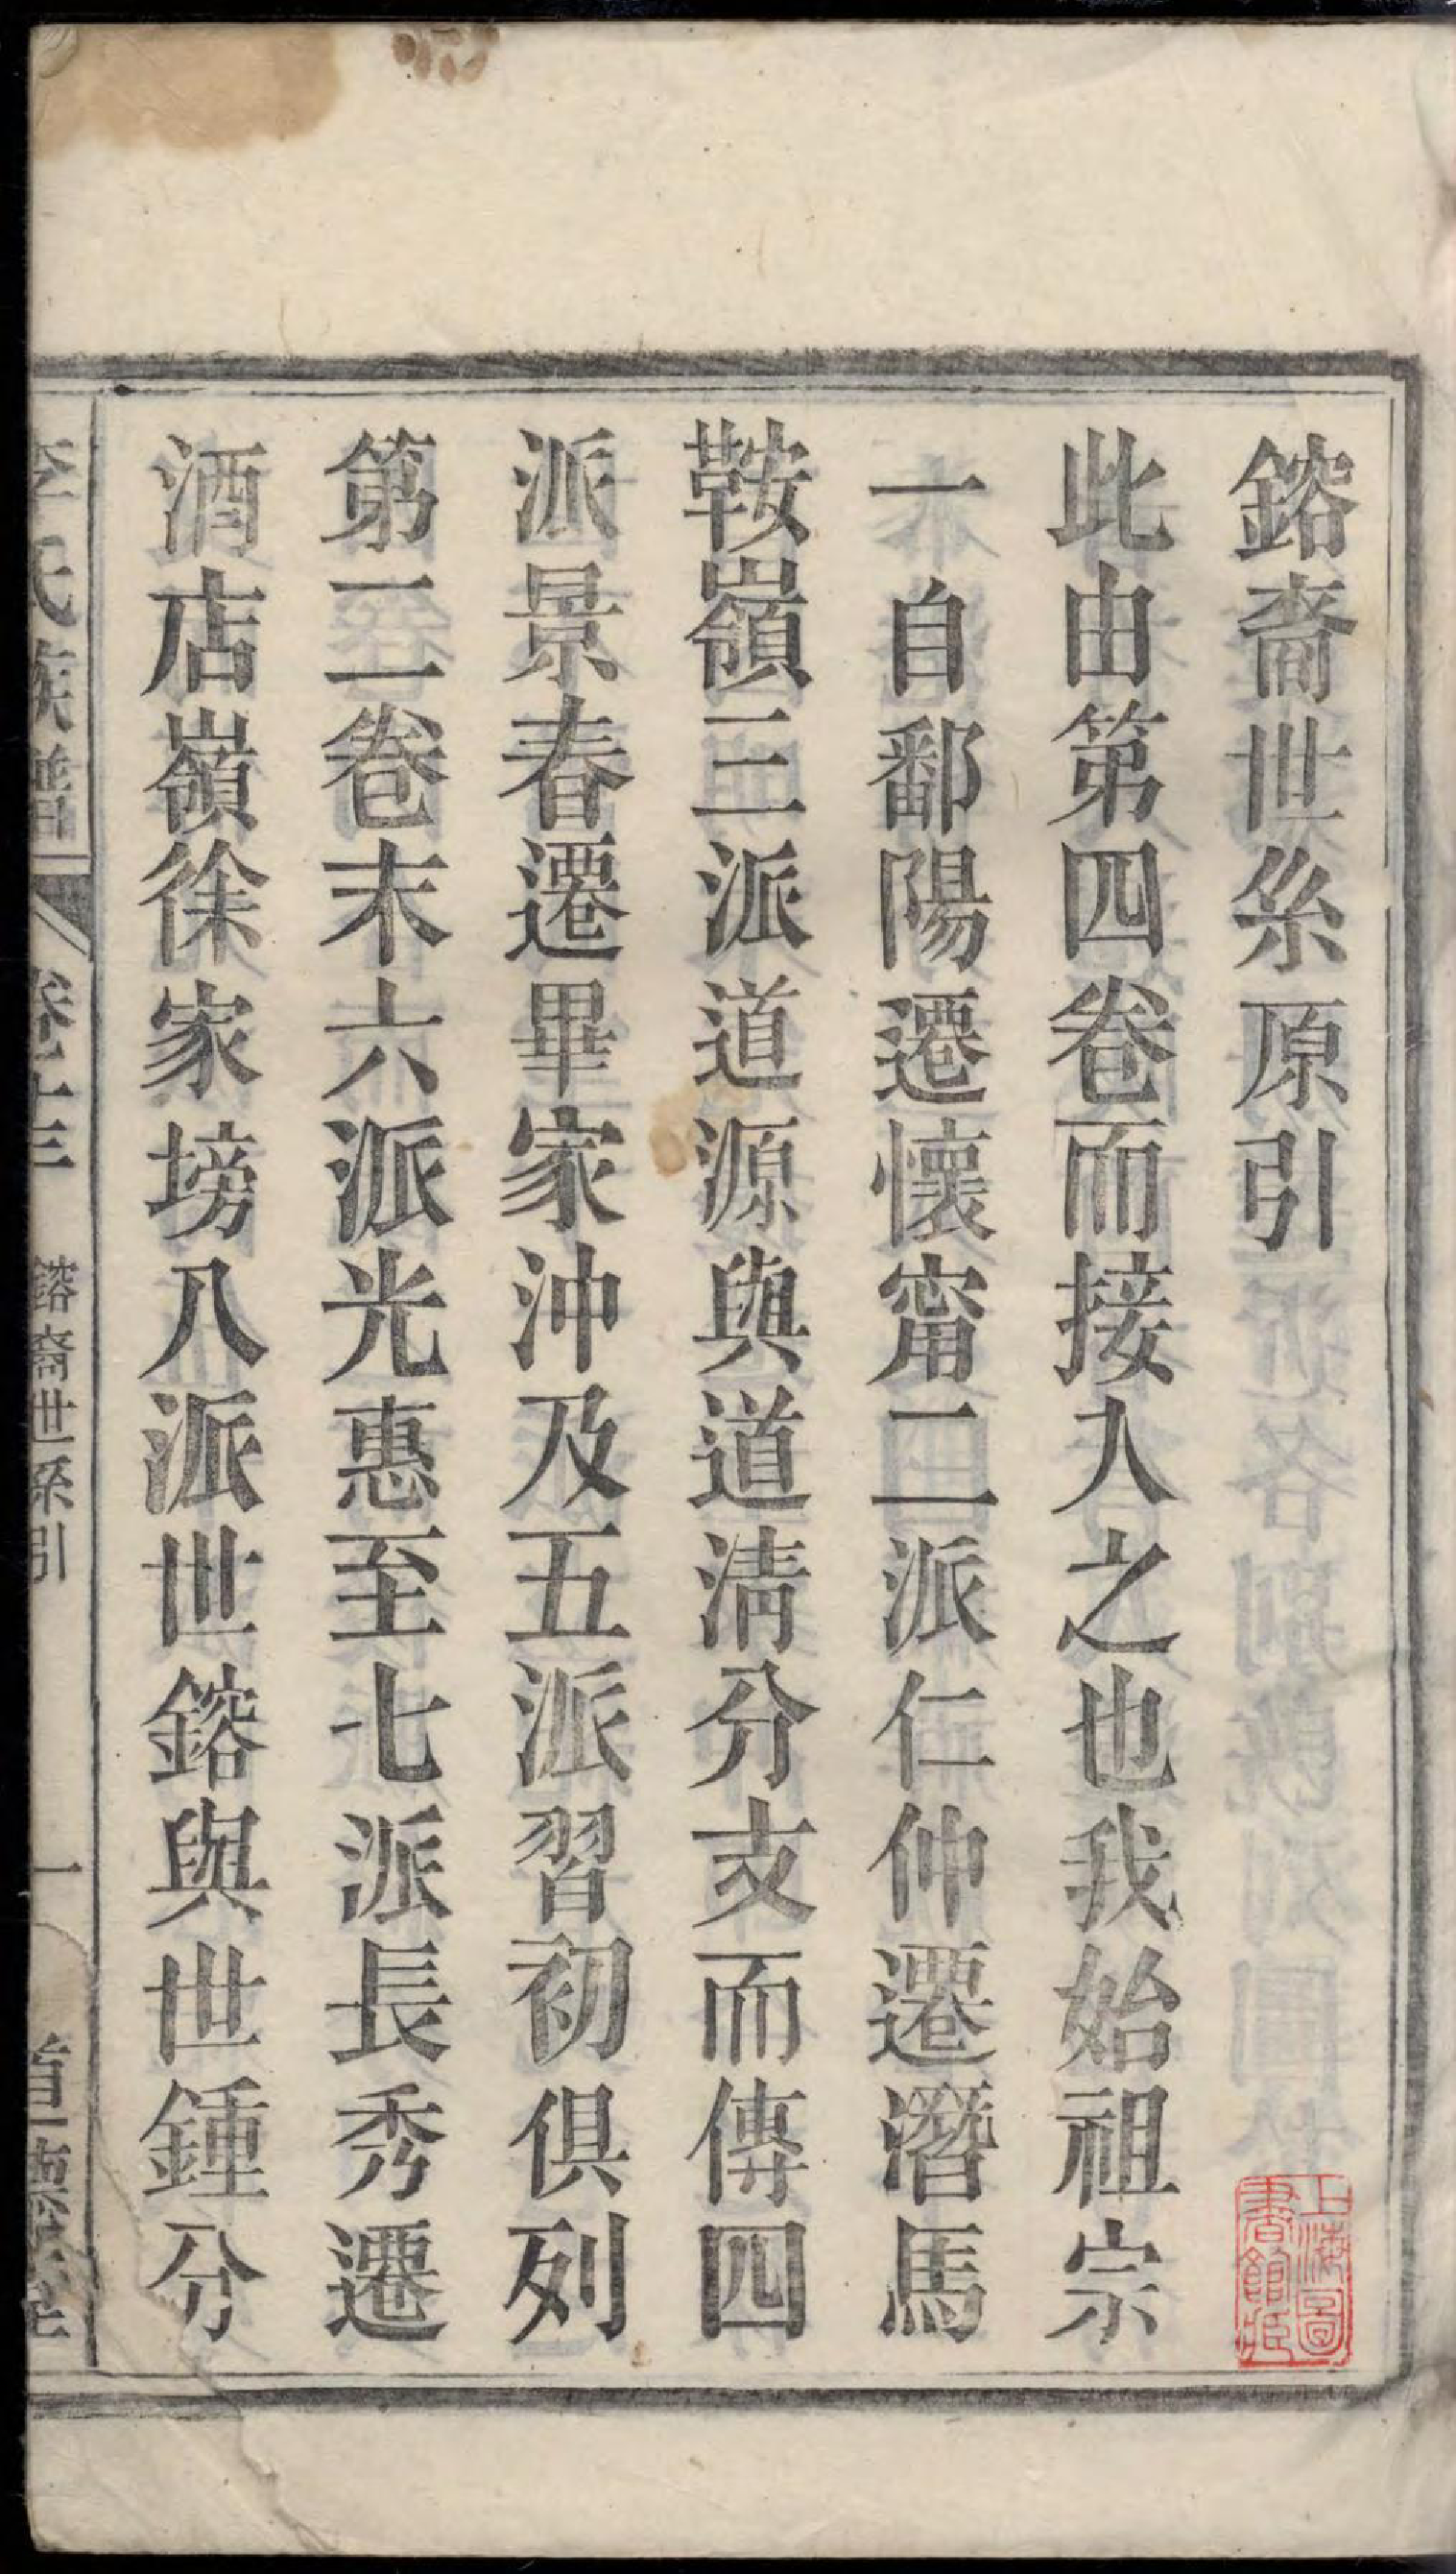 鎔裔世系原引
此由第四卷而接入之也我始祖宗
一自鄱陽遷懷甯二派仁仲遷潛馬
鞍嶺三派道源與道淸分支而傳四
派景春遷畢家沖及五派習初俱列
第二卷末六派光惠至七派長秀遷
酒店嶺徐家塝八派世鎔與世鍾分
李氏族譜 卷十三 鎔裔世系引 一
上海圖書館藏